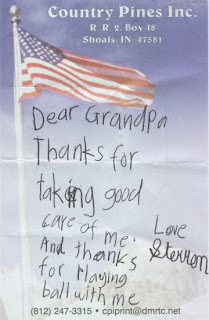 Country Pines Inc.
R. R. 2, Box 48
Shoals, IN 47581
Dear Grandpa
Thanks for
taking good
care of me.
And thanks
for Playing
ball with me
Love
Sterron
(812) 247-3315 • cpiprint@dmrtc.net